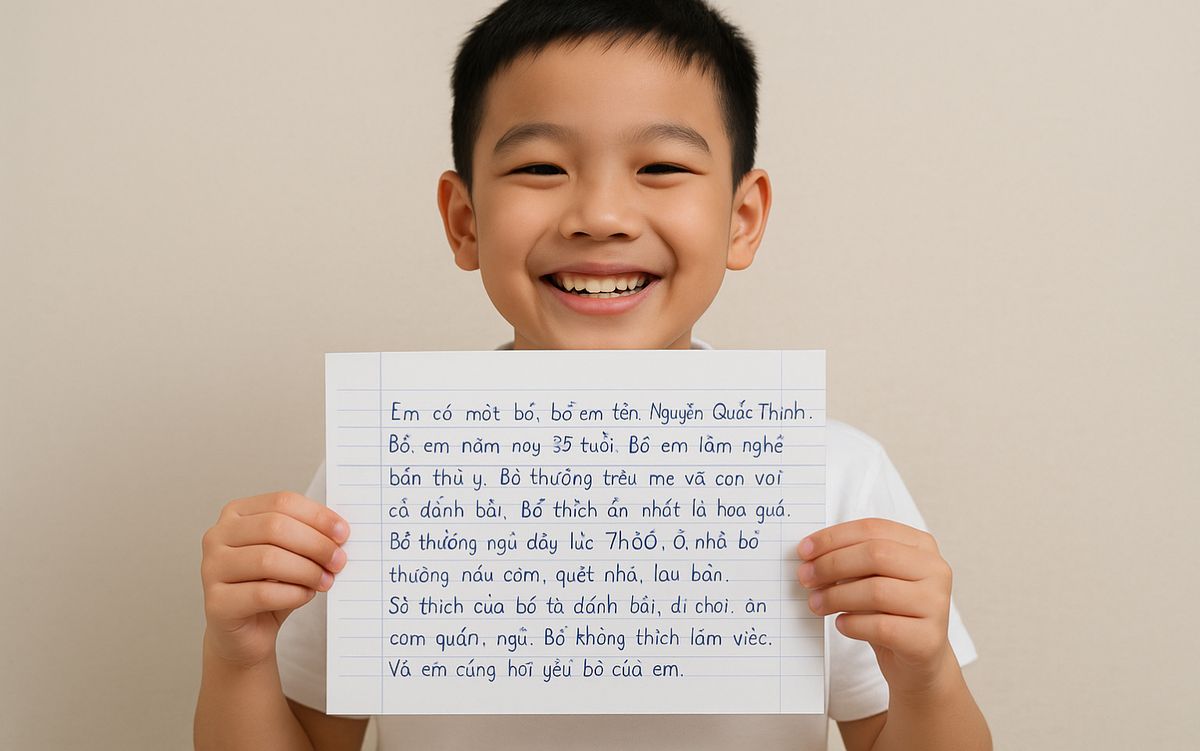 Em có mòt bố, bố em tên. Nguyễn Quấc Thinh.
Bố. em năm noy 35 tuổi. Bô em lầm nghế
bán thù y. Bò thưỡng trêu me vã con voi
cả dánh bài, Bố thích ấn nhát là hoa guá.
Bố thướng ngủ dây lúc 7hỏỏ, Ỏ, nhà bố
thường náu còm, quét nhá, lau bàn.
Sò thich của bó tà dánh bài, di choi. àn
com quán, ngủ. Bố không thich lám vièc.
Vá em cúng hơi yêu bò cúà em.